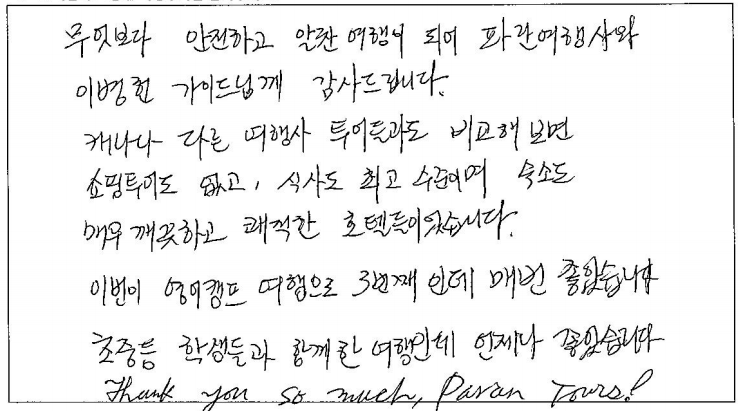 무엇보다 안전하고 알찬 여행이 되어 파란여행사와
이병헌 가이드님께 감사드립니다.
캐나다 다른 여행사 투어들과도 비교해 보면
쇼핑투어도 없고, 식사도 최고 수준이며 숙소도
매우 깨끗하고 쾌적한 호텔들이었습니다.
이번이 영어캠프 여행으로 3번째 인데 매번 좋았습니다
초중등 학생들과 함께한 여행인데 언제나 좋았습니다
Thank you so much, Paran Tours!